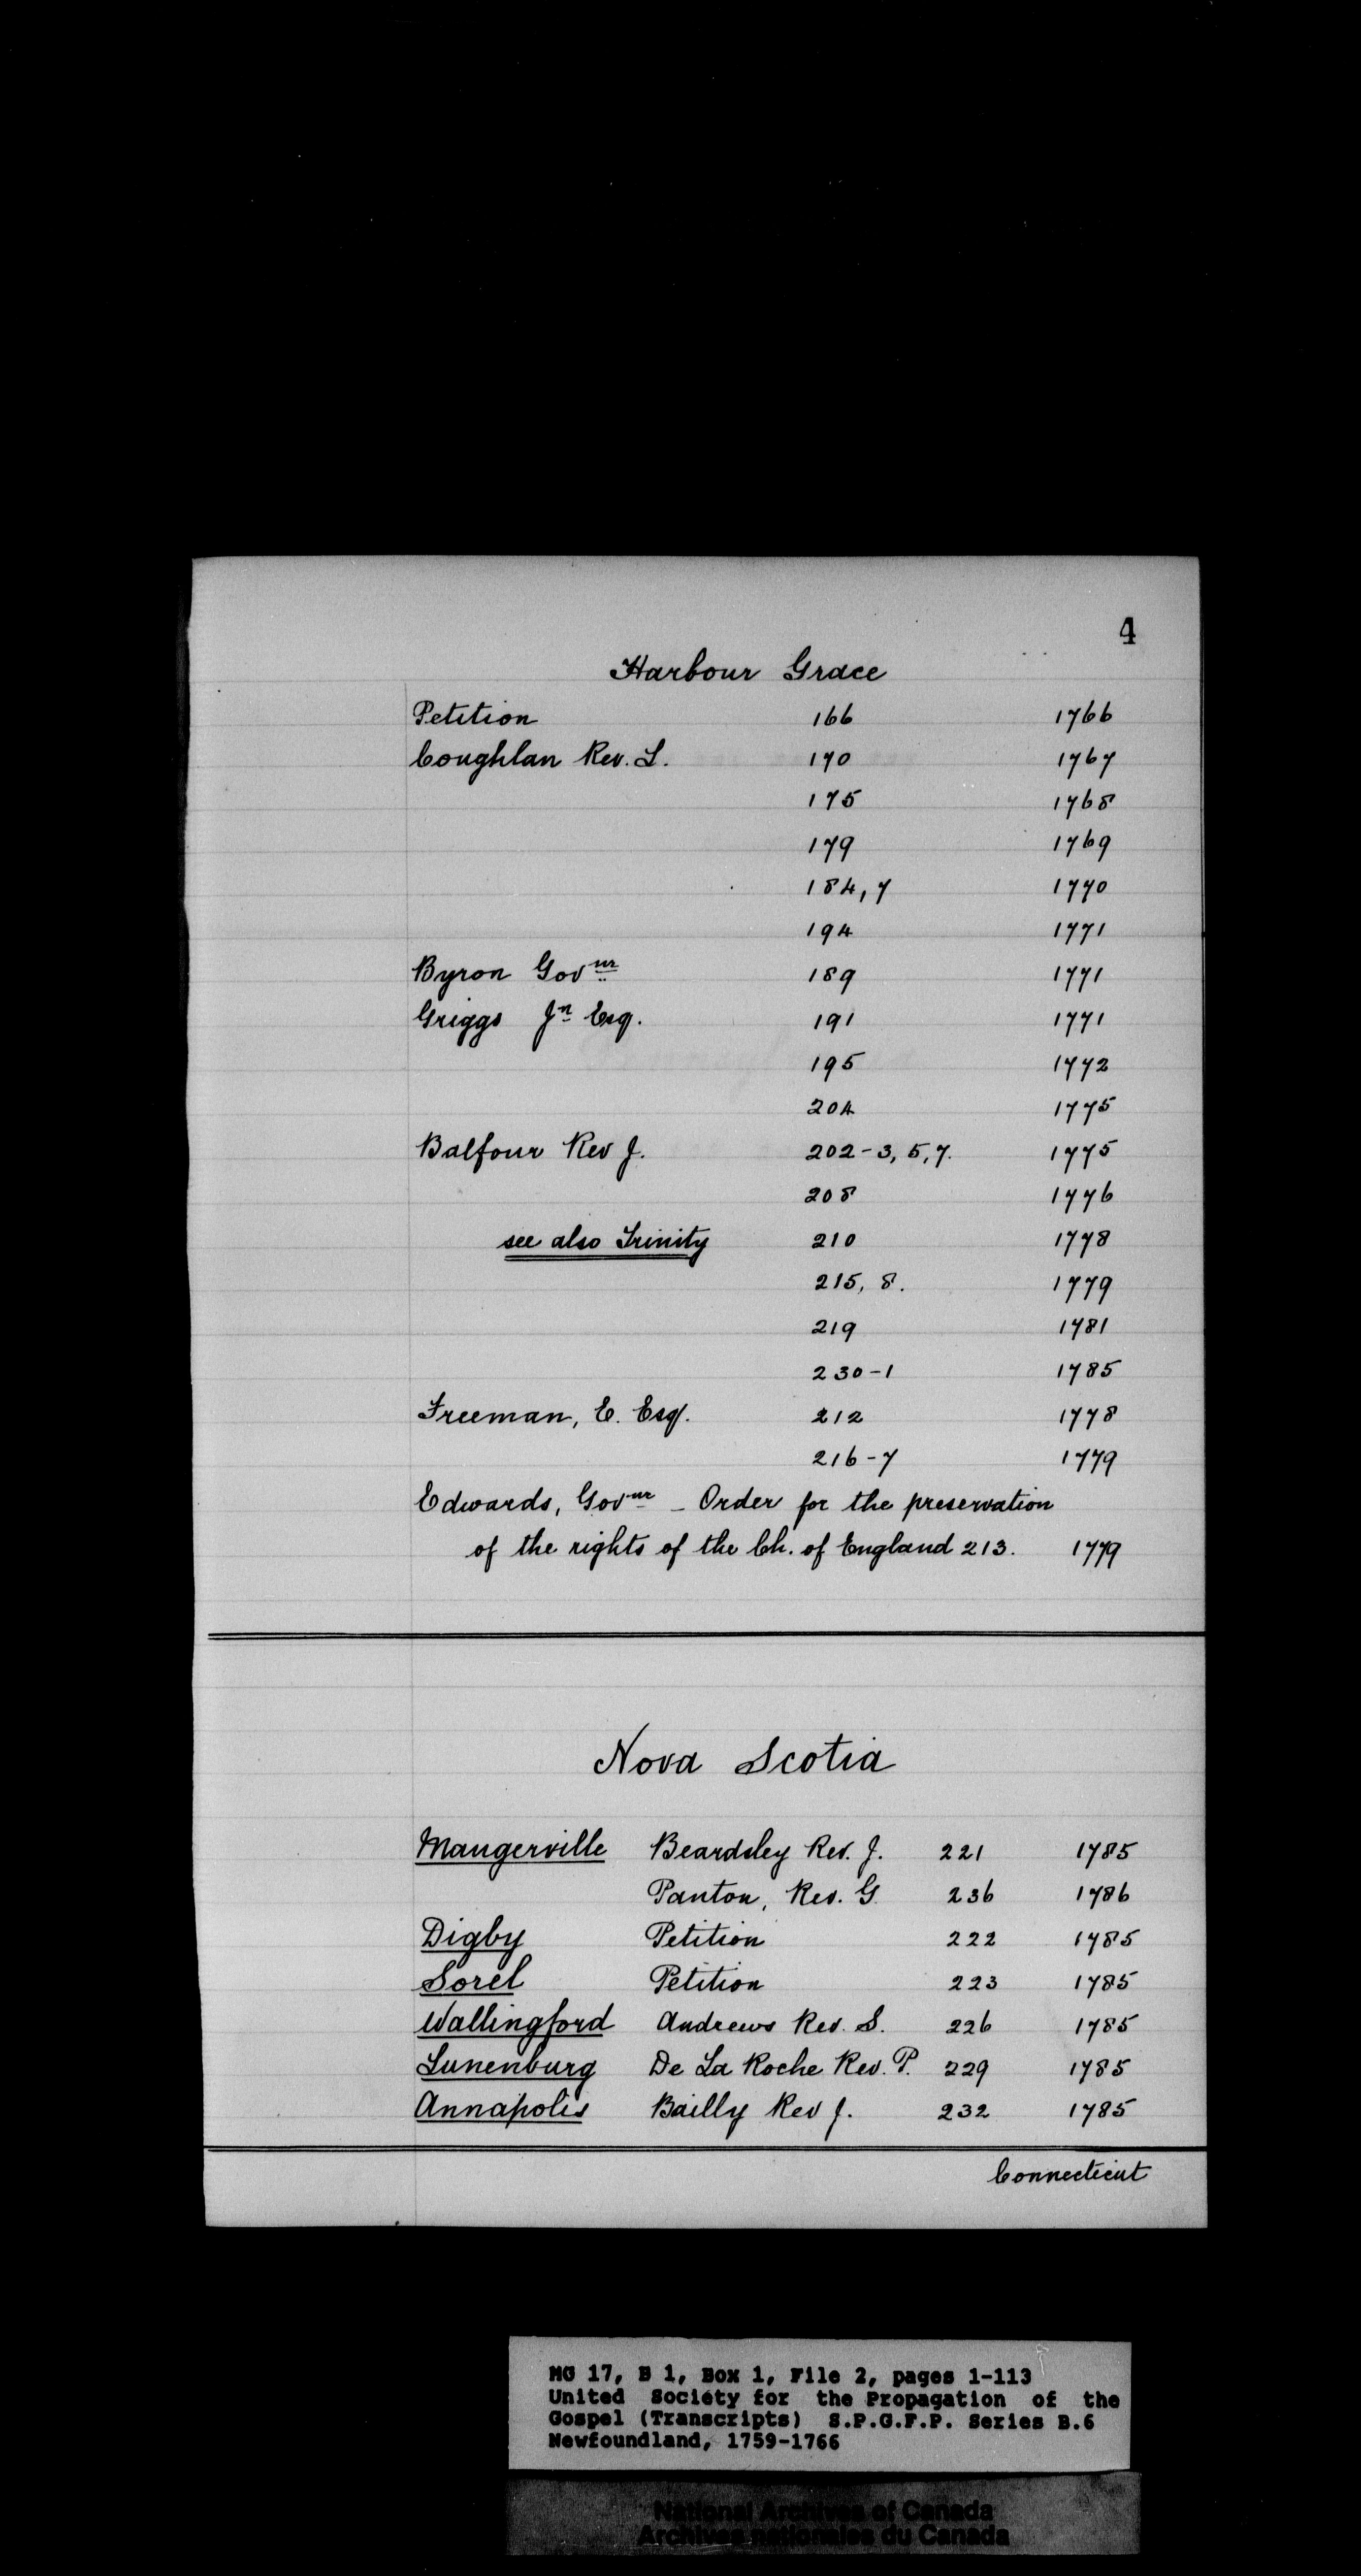 4
Harbour Grace
Petition 166 1766
Coughlan Rev. L. 170 1767
175 1768
179 1769
184, 7 1770
194 1771
Byron Govnr 189 1771
Griggs Jn Esq. 191 1771
195 1772
204 1775
Balfour Rev J. 202-3, 5, 7. 1775
208 1776
see also Trinity 210 1778
215, 8. 1779
219 1781
230-1 1785
Freeman, E. Esq. 212 1778
216-7 1779
Edwards, Govnr - Order for the preservation
of the rights of the Ch. of England 213. 1779
Nova Scotia
Maugerville Beardsley Rev. J. 221 1785
Panton, Rev. G 236 1786
Digby Petition 222 1785
Sorel Petition 223 1785
Wallingford Andrews Rev. S. 226 1785
Lunenburg De La Roche Rev. P. 229 1785
Annapolis Bailly Rev J. 232 1785
Connecticut
MG 17, B 1, Box 1, File 2, pages 1-113
United Society for the Propagation of the
Gospel (Transcripts) S.P.G.F.P. Series B.6
Newfoundland, 1759-1766
National Archives of Canada
Archives nationales du Canada